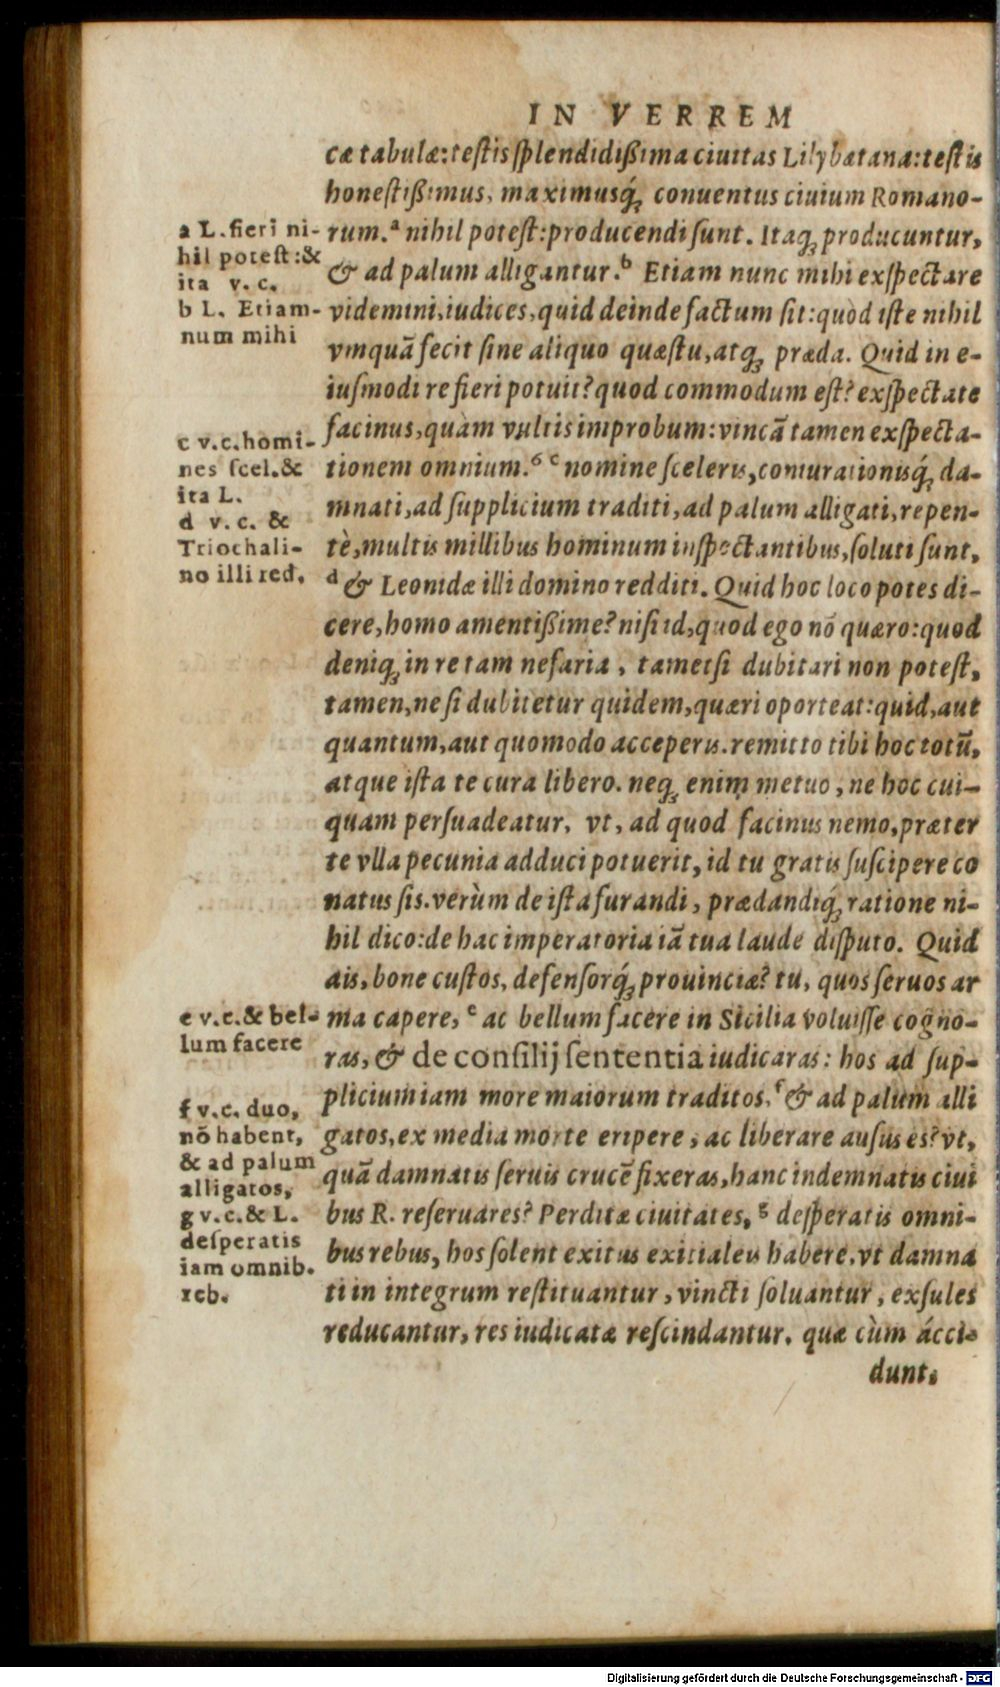 IN VERREM
cæ tabulæ: testis splendidißima ciuitas Lilybætana: testis
honestißimus, maximusq́ꝫ conuentus ciuium Romano-
rum.ᵃ nihil potest: producendi sunt. Itaqꝫ producuntur,
& ad palum alligantur.ᵇ Etiam nunc mihi exspectare
videmini, iudices, quid deinde factum sit: quòd iste nihil
vmquã fecit sine aliquo quæstu, atqꝫ præda. Quid in e-
iusmodi re fieri potuit? quod commodum est? exspectate
facinus, quàm vultis improbum: vincã tamen exspecta-
tionem omnium.⁶ ᶜ nomine sceleris, coniurationisq́ꝫ da-
mnati, ad supplicium traditi, ad palum alligati, repen-
tè, multis millibus hominum inspectantibus, soluti sunt,
ᵈ & Leonidæ illi domino redditi. Quid hoc loco potes di-
cere, homo amentißime? nisi id, quod ego nõ quæro: quod
deniqꝫ in re tam nefaria, tametsi dubitari non potest,
tamen, ne si dubitetur quidem, quæri oporteat: quid, aut
quantum, aut quomodo acceperis. remitto tibi hoc totũ,
atque ista te cura libero. neqꝫ enim metuo, ne hoc cui-
quam persuadeatur, vt, ad quod facinus nemo, præter
te vlla pecunia adduci potuerit, id tu gratis suscipere co
natus sis. verùm de ista furandi, prædandiq́ꝫ ratione ni-
hil dico: de hac imperatoria iã tua laude disputo. Quid
ais, bone custos, defensorq́ꝫ prouinciæ? tu, quos seruos ar
ma capere, ᵉ ac bellum facere in Sicilia voluisse cogno-
ras, & de consilij sententia iudicaras: hos ad sup-
plicium iam more maiorum traditos, ᶠ & ad palum alli
gatos, ex media morte eripere, ac liberare ausus es? vt,
quã damnatis seruis crucẽ fixeras, hanc indemnatis ciui
bus R. reseruares? Perditæ ciuitates, ᵍ desperatis omni-
bus rebus, hos solent exitus exitialeis habere, vt damna
ti in integrum restituantur, vincti soluantur, exsules
reducantur, res iudicatæ rescindantur. quæ cùm ácci-
dunt,
a L. fieri ni-
hil potest: &
ita v. c.
b L. Etiam-
num mihi
c v.c. homi-
nes scel. &
ita L.
d v. c. &
Triochali-
no illi red.
e v.c. & bel-
lum facere
f v.c. duo,
nõ habent,
& ad palum
alligatos,
g v.c. & L.
desperatis
iam omnib.
reb.
Digitalisierung gefördert durch die Deutsche Forschungsgemeinschaft - DFG